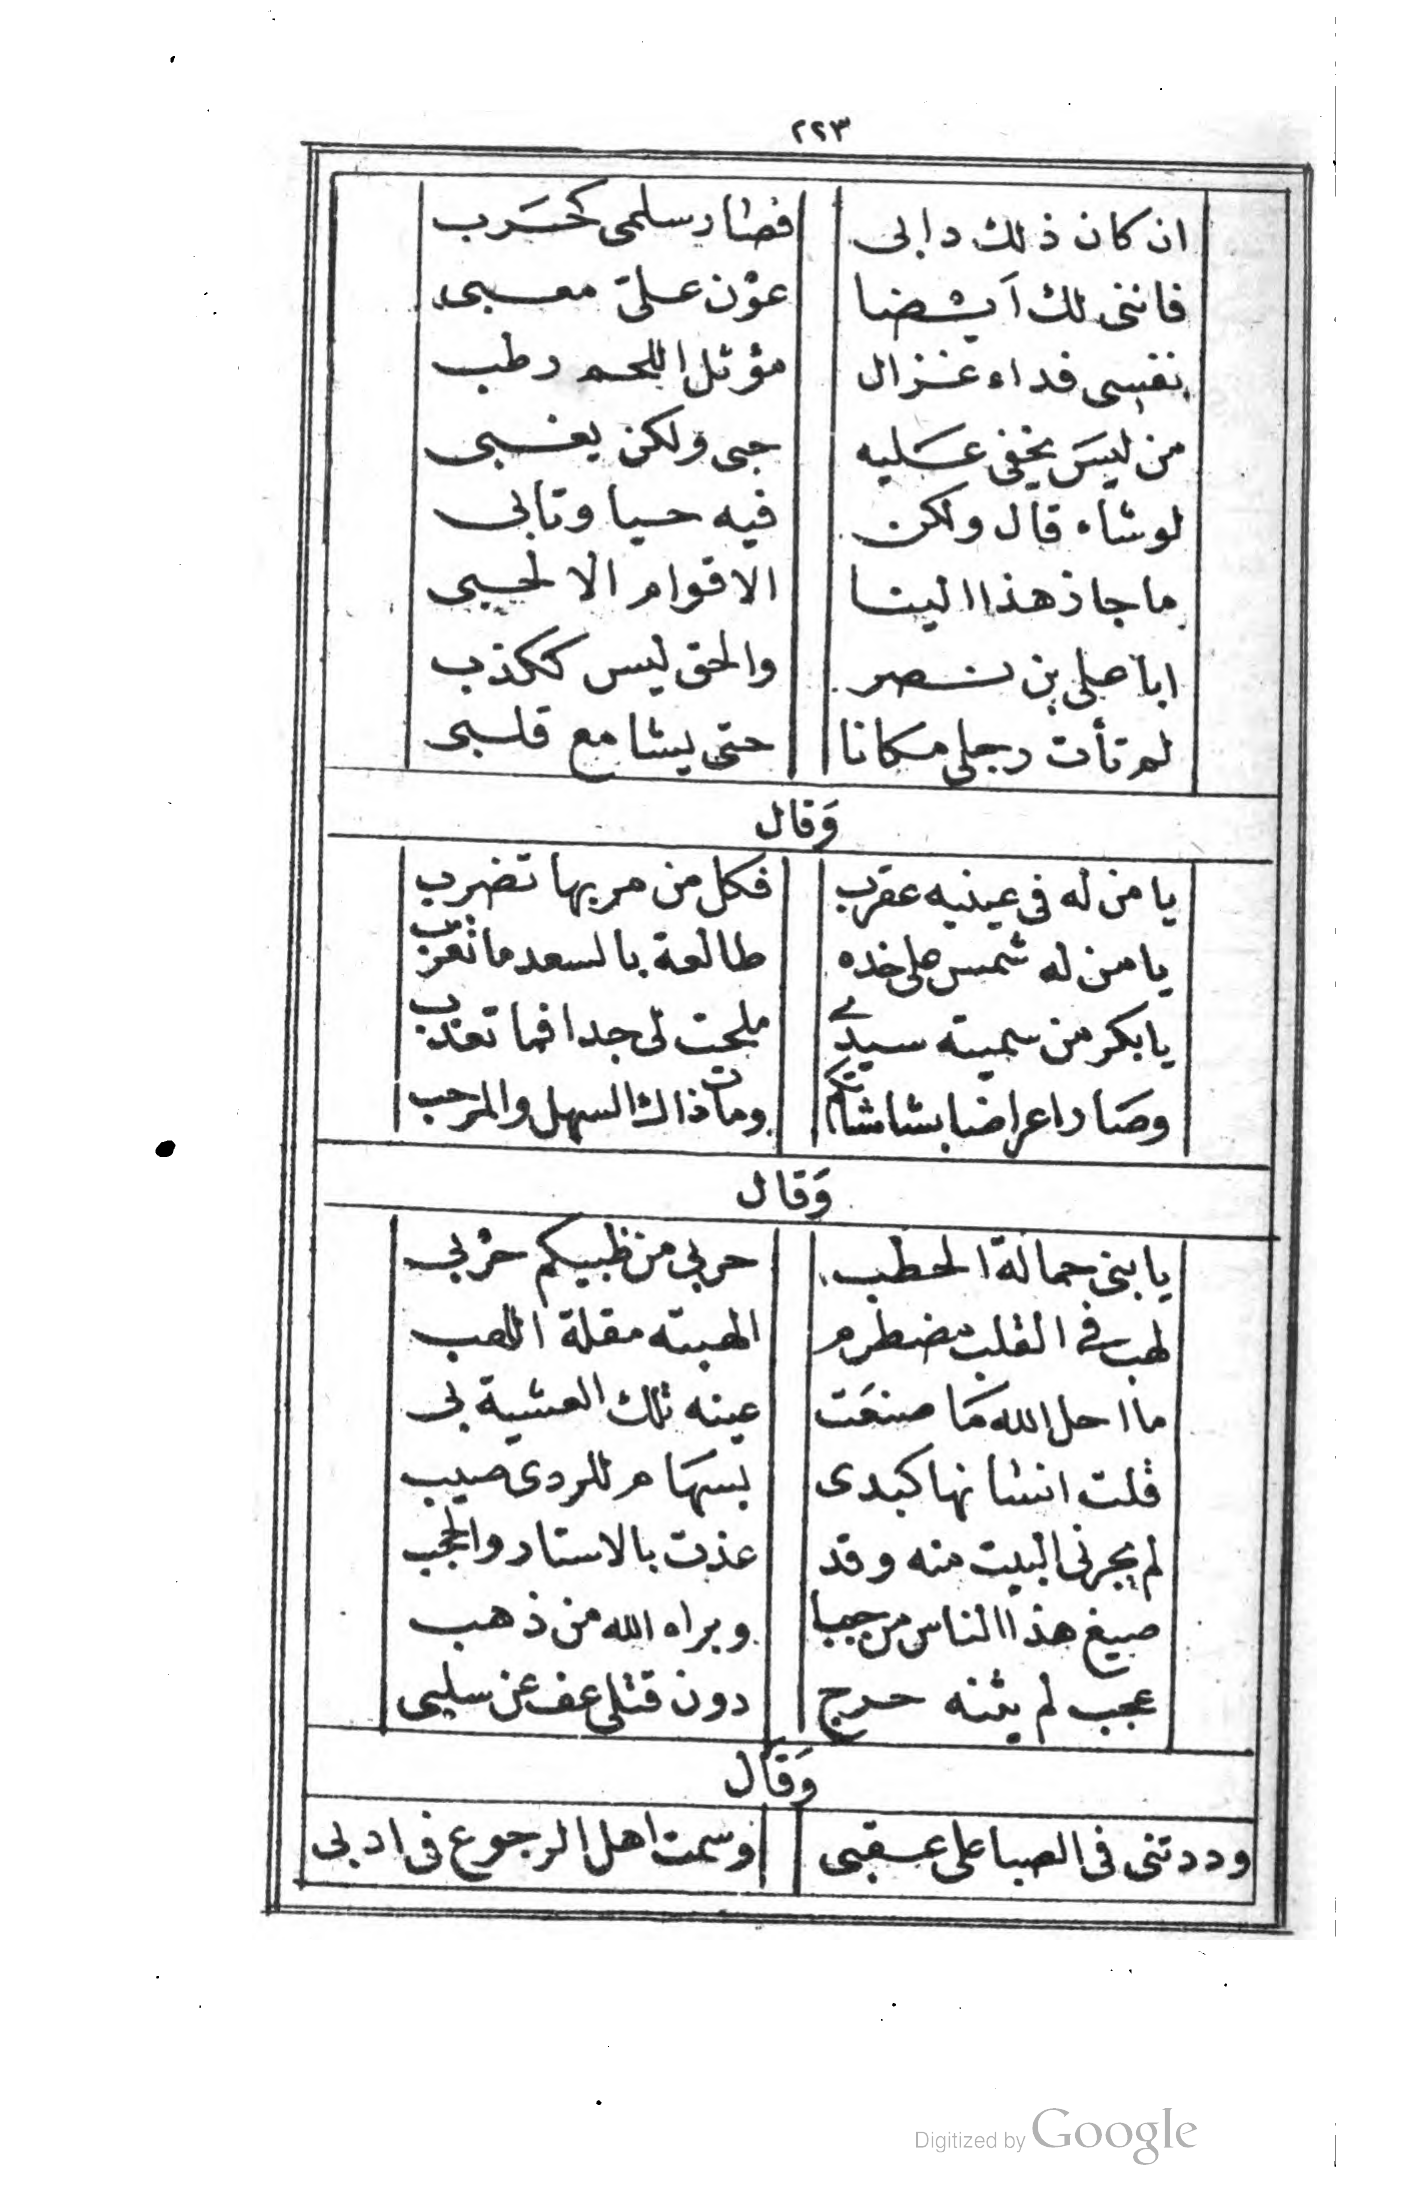 ٢٢٣
ان كان ذلك دابى فصار سلمى كحَرب
فاننى لك اَيضا عوْن علىّ معـبى
نفسى فداء غزال مؤتل اللحم رطب
من ليسَ يخفى عَليه حبى ولكن يغـبى
لو شاء قال ولكن فيه حيا وتابى
ما جاز هذا الينا الاقوام الا لحبى
ابا على بن نصر والحق ليس ككذب
لم تأت رجلى مكانا حتى يشا مع قلبى
وَقال
يا من له فى عينيه عقرب فكل من مر بها تضرب
يا من له شمس على خده طالعة بالسعد ما تغرب
يا بكر من سميته سيدى ملحت لى جدا فما تعذب
وصَار اعراضا بشاشاتكم ومات ذاك السهل والمرحب
وَقال
يا بنى حمالة الحطب حربى من ظبيكم حرْبى
لهب فى القلب مضطرم الهبته مقلة اللهب
ما احل الله مَا صنعَت عينه تلك العشية بى
قلت انشا نها كبدى بسهام للردى صيب
لم يجرنى البيت منه وقد عذت بالاستار والحجب
صيغ هذا الناس من حبا وبراه الله من ذهب
عجب لم يثنه حرج دون قتلى عف عن سلبى
وَقَال
وددتنى فى الصبا على عقبى وسمت اهل الرجوع فى ادبى
Digitized by Google